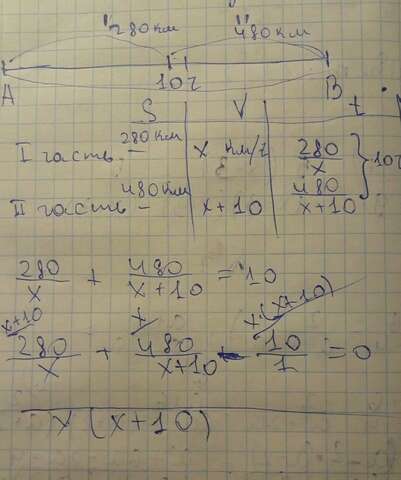 280 км 480 км
10ч
A B
S V t
I часть - 280 км x км/ч 280/x } 10ч
II часть - 480 км x+10 480/x+10
280/x + 480/x+10 = 10
x+10 x x·(x+10)
280/x + 480/x+10 - 10/1 = 0
x(x+10)